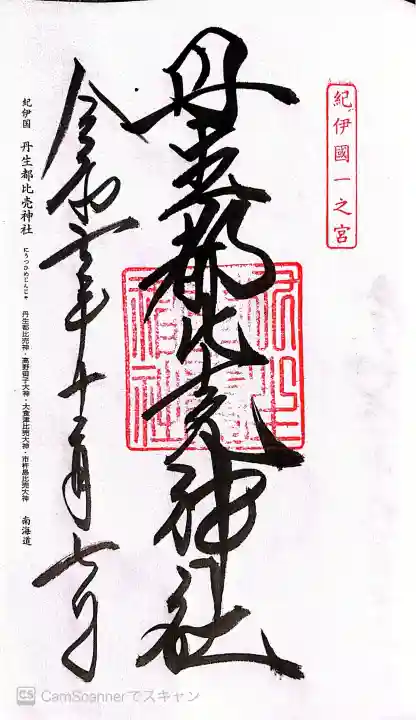 紀伊國一之宮
丹生都比売神社
令和元年十二月七日
紀伊国 丹生都比売神社 にうつひめじんじゃ 丹生都比売大神・高野御子大神・大食津比売大神・市杵島比売大神 南海道
CS CamScannerでスキャン